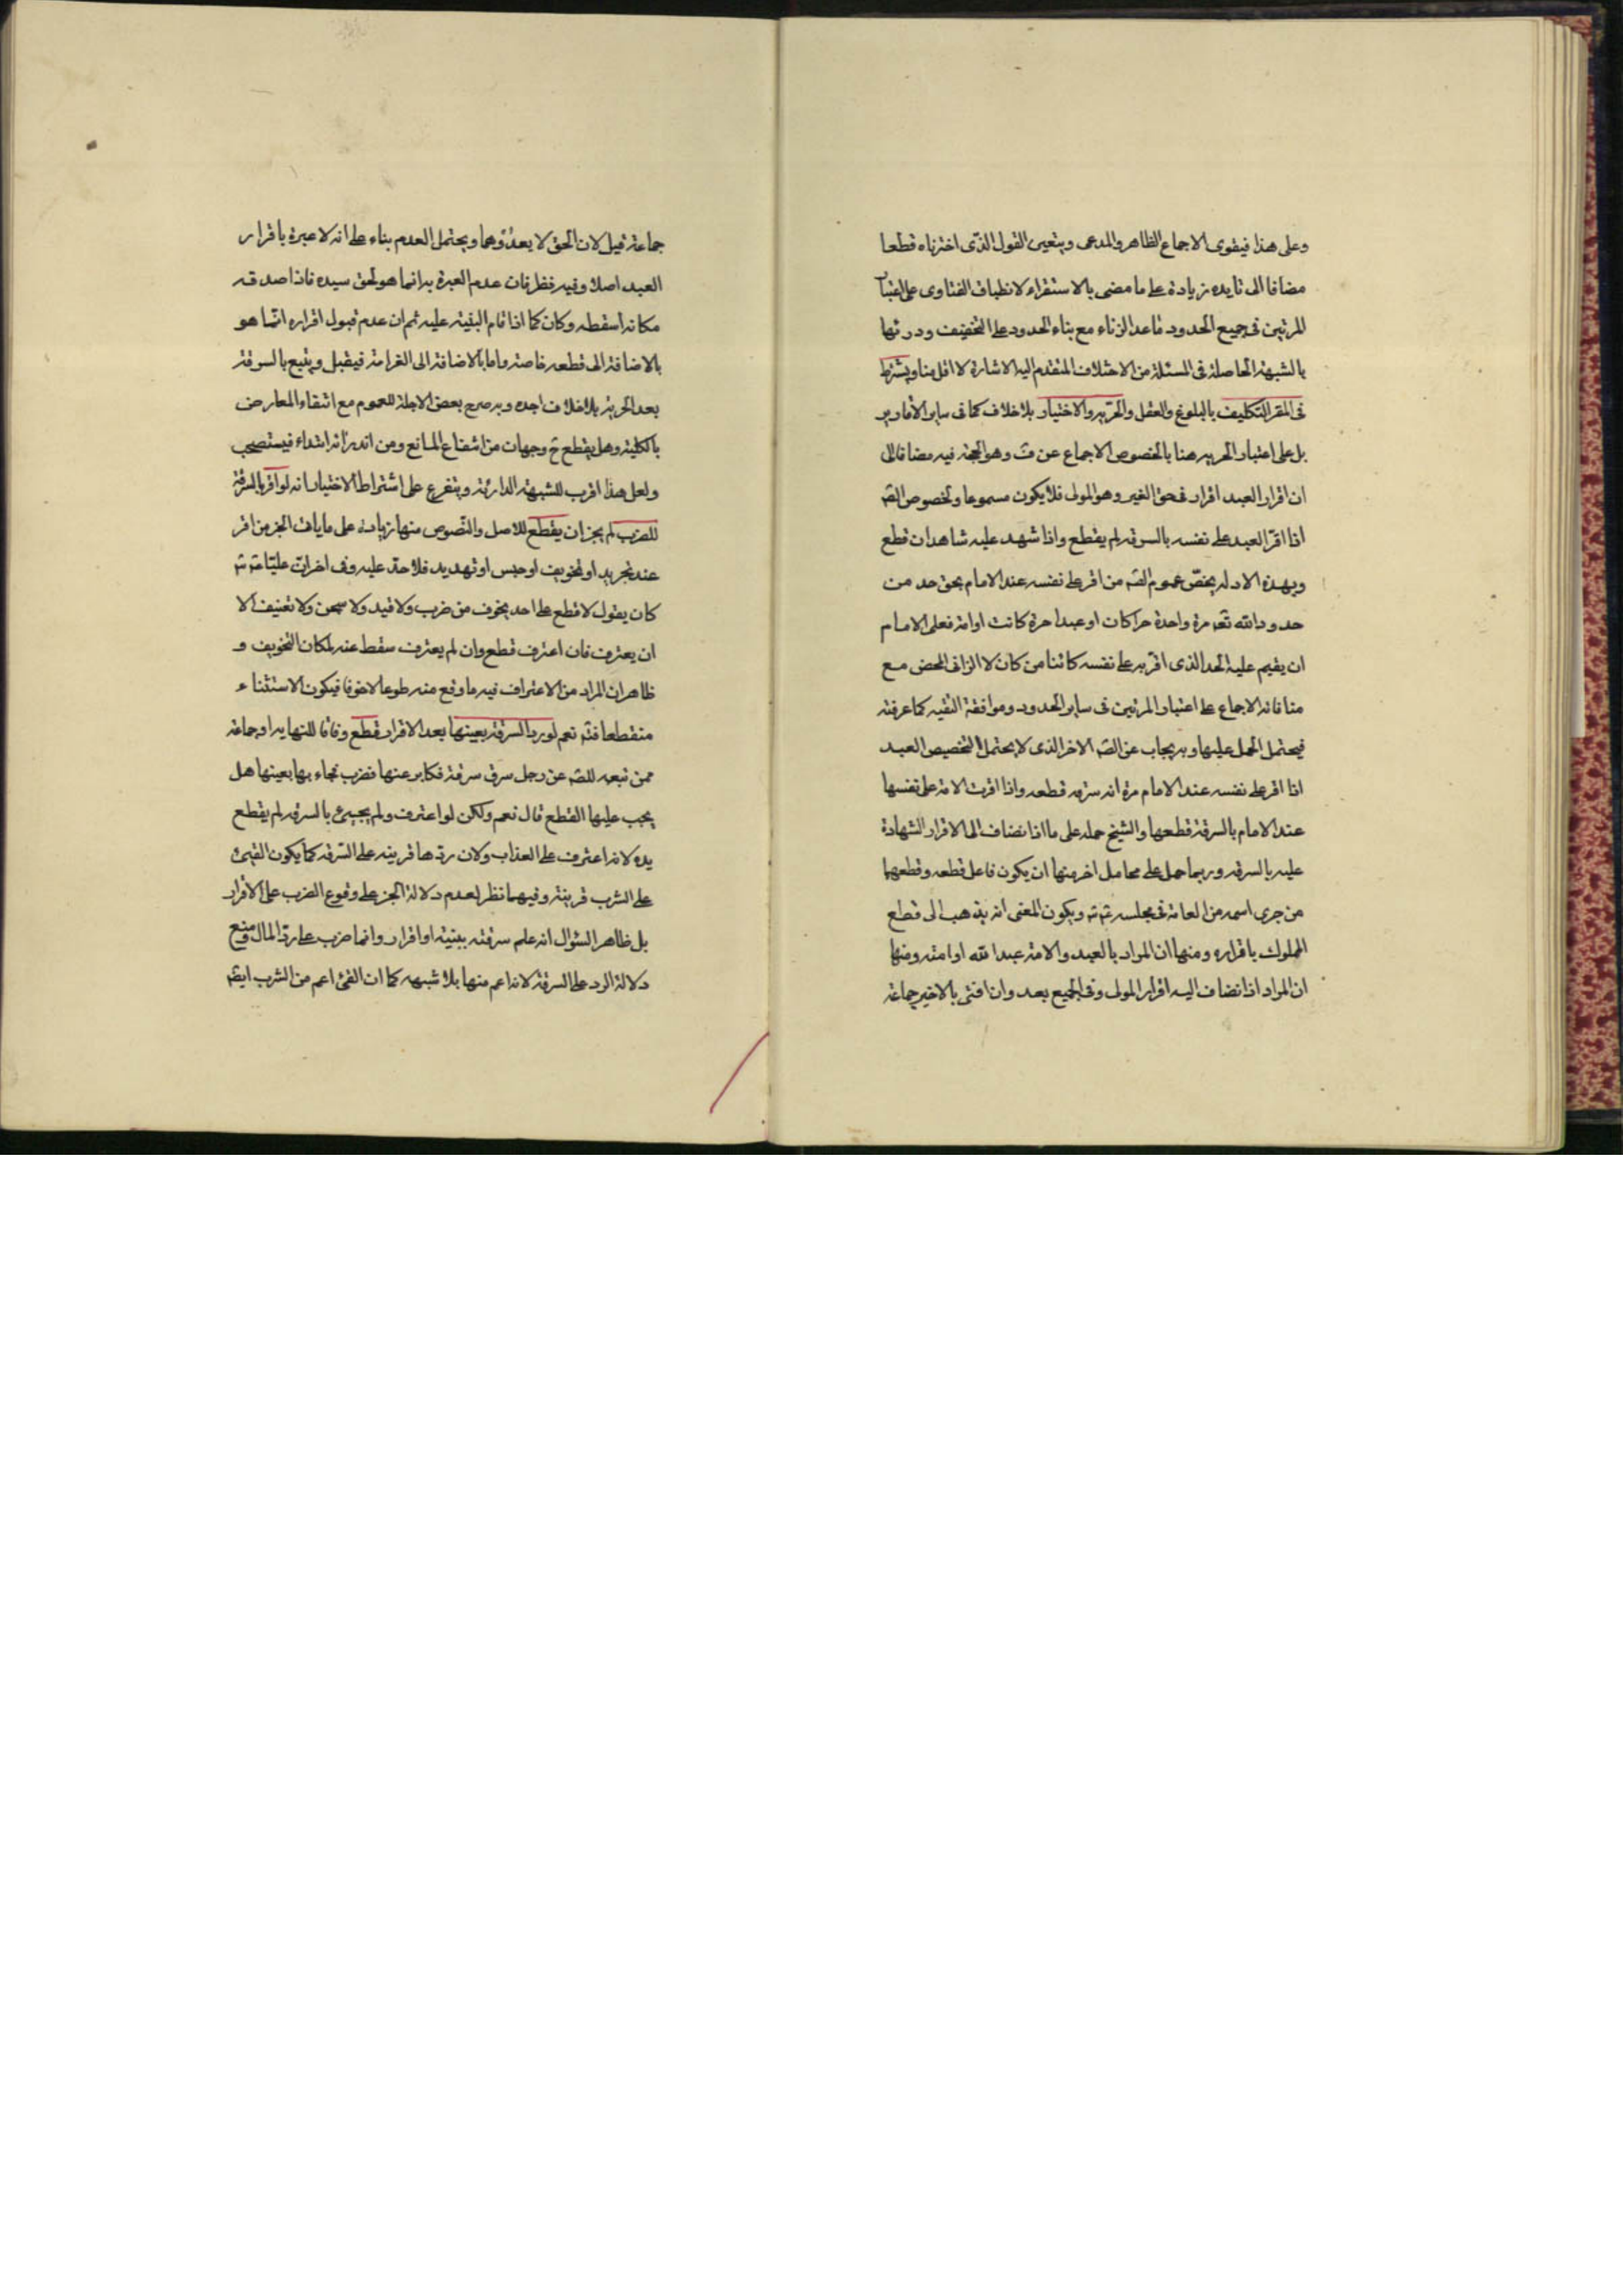 وعلى هذا فيقوى الاجماع الظاهر والمدعى ويتعين القول الذى اخترناه قطعا
مضافا الى تايده زيادة على ما مضى بالاستقراء لانطباق الفتاوى على اعتبار
المرتين فى جميع الحدود ماعدا الزناء مع بناء الحدود على التخفيف ودرئها
بالشبهة الحاصلة فى المسئلة من الاختلاف المتقدم اليه الاشارة لا اقل منا ويشترط
فى المقر التكليف بالبلوغ والعقل والحرّيه والاختيار بلا خلاف كما فى ساير الأقارير
بل على اعتبار الحريه هنا بالخصوص الاجماع عن ف وهو الحجة فيه مضافا الى
ان اقرار العبد اقرار فى حق الغير وهو المولى فلا يكون مسموعا ولخصوص الصّ
اذا اقرّ العبد على نفسه بالسرقه لم يقطع واذا شهد عليه شاهدان قطع
وبهذه الادله يخصّ عموم الصّ من اقر على نفسه عند الامام بحق حد من
حدود الله تعه مرة واحدة حرا كان او عبدا حرة كانت او امة فعلى الامام
ان يقيم عليه الحد الذى اقر به على نفسه كائنا من كان الا الزانى المحصن مع
منافاته الاجماع على اعتبار المرتين فى ساير الحدود وموافقة التقيه كما عرفته
فيحتمل الحمل عليها وبه يجاب عن الصّ الاخر الذى لا يحتمل التخصيص العبد
اذا اقر على نفسه عند الامام مرة انه سرق قطعه واذا اقرت الامة على نفسها
عند الامام بالسرقة قطعها والشيخ حمله على ما اذا انضاف الى الاقرار الشهادة
عليه بالسرقه وربما حمل على محامل اخر منها ان يكون فاعل قطعه وقطعهما
من جرى اسمه من العامة فى مجلسه ثمّة ويكون المعنى انه يذهب الى قطع
المملوك باقراره ومنها ان المراد بالعبد والامة عبد الله او امته ومنها
ان المراد اذا انضاف اليه اقرار المولى وفى الجميع بعد وان افتى بالاخير جماعة
جماعة قيل لان الحق لا يعدُوهما ويحتمل العدم بناء على انه لا عبرة باقرار
العبد اصلا وفيه نظر فان عدم العبرة به انما هو لحق سيده فاذا صدقه
مكانه اسقطه وكان كما اذا قام البينة عليه ثم ان عدم قبول اقراره انّما هو
بالاضافة الى قطعه خاصة واما بالاضافة الى الغرامة فيقبل ويتبع بالسرقة
بعد الحرية بلا خلاف اجده وبه صرح بعض الاجلة للعموم مع انتفاء المعارض
بالكلية وهل يقطع ح وجهان من ارتفاع المانع ومن اندرائه ابتداء فيستصحب
ولعل هذا اقرب للشبهة الدارئة ويتفرع على اشتراط الاختيار انه لو اقر بالسرقة
للضرب لم يجز ان يقطع للاصل والنّصوص منها زيادة على ما ياتى الخبر من اقر
عند تجريد او تخويف او حبس او تهديد فلا حدّ عليه وفى اخر ان عليّا
كان يقول لا قطع على احد يخوف من ضرب ولا قيد ولا سجن ولا تعنيف الا
ان يعترف فان اعترف قطع وان لم يعترف سقط عنه لمكان التخويف و
ظاهر ان المراد من الاعتراف فيه ما وقع منه طوعا لا خوفا فيكون الاستثناء
منقطعا فتم نعم لو رد السرقة بعينها بعد الاقرار قطع وفاقا للنهايه او جماعة
ممن تبعه للصّ عن رجل سرق سرقة فكابر عنها فضرب فجاء بها بعينها هل
يجب عليها القطع قال نعم ولكن لو اعترف ولم يجيئ بالسرقه لم يقطع
يده لانه اعترف على العذاب ولان ردها قرينه على السّرقه كما يكون القيئ
على الشرب قرينة وفيهما نظر لعدم دلالة الخبر على وقوع الضرب على الاقرار
بل ظاهر السّؤال انه علم سرقته ببينة او اقرار وانما ضرب على ردّ المال ومنع
دلالة الرد على السرقة لانه اعم منها بلا شبهه كما ان القئ اعم من الشرب ايضّ